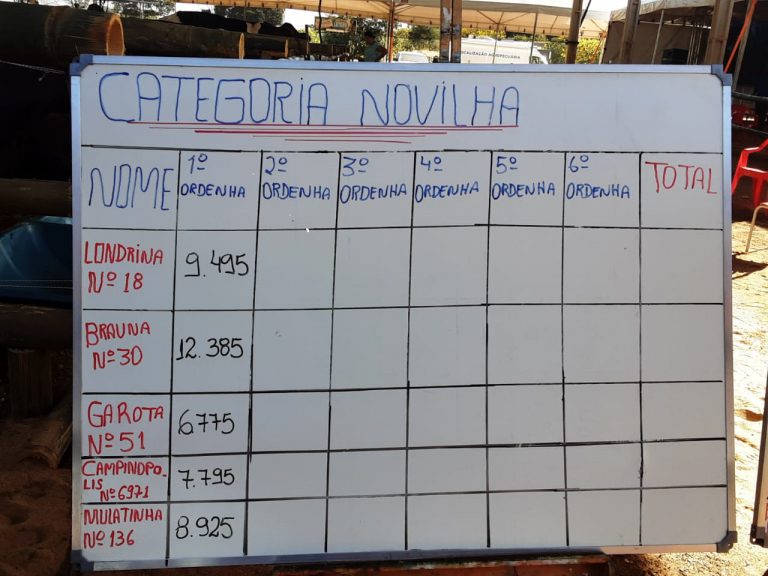 FISCALIZAÇÃO AGROPECUÁRIA
CATEGORIA NOVILHA
NOME
1º ORDENHA
2º ORDENHA
3º ORDENHA
4º ORDENHA
5º ORDENHA
6º ORDENHA
TOTAL
LONDRINA
Nº 18
9.495
BRAUNA
Nº 30
12.385
GAROTA
Nº 51
6775
CAMPINOPO-
LIS
Nº 6971
7.795
MULATINHA
Nº 136
8.925